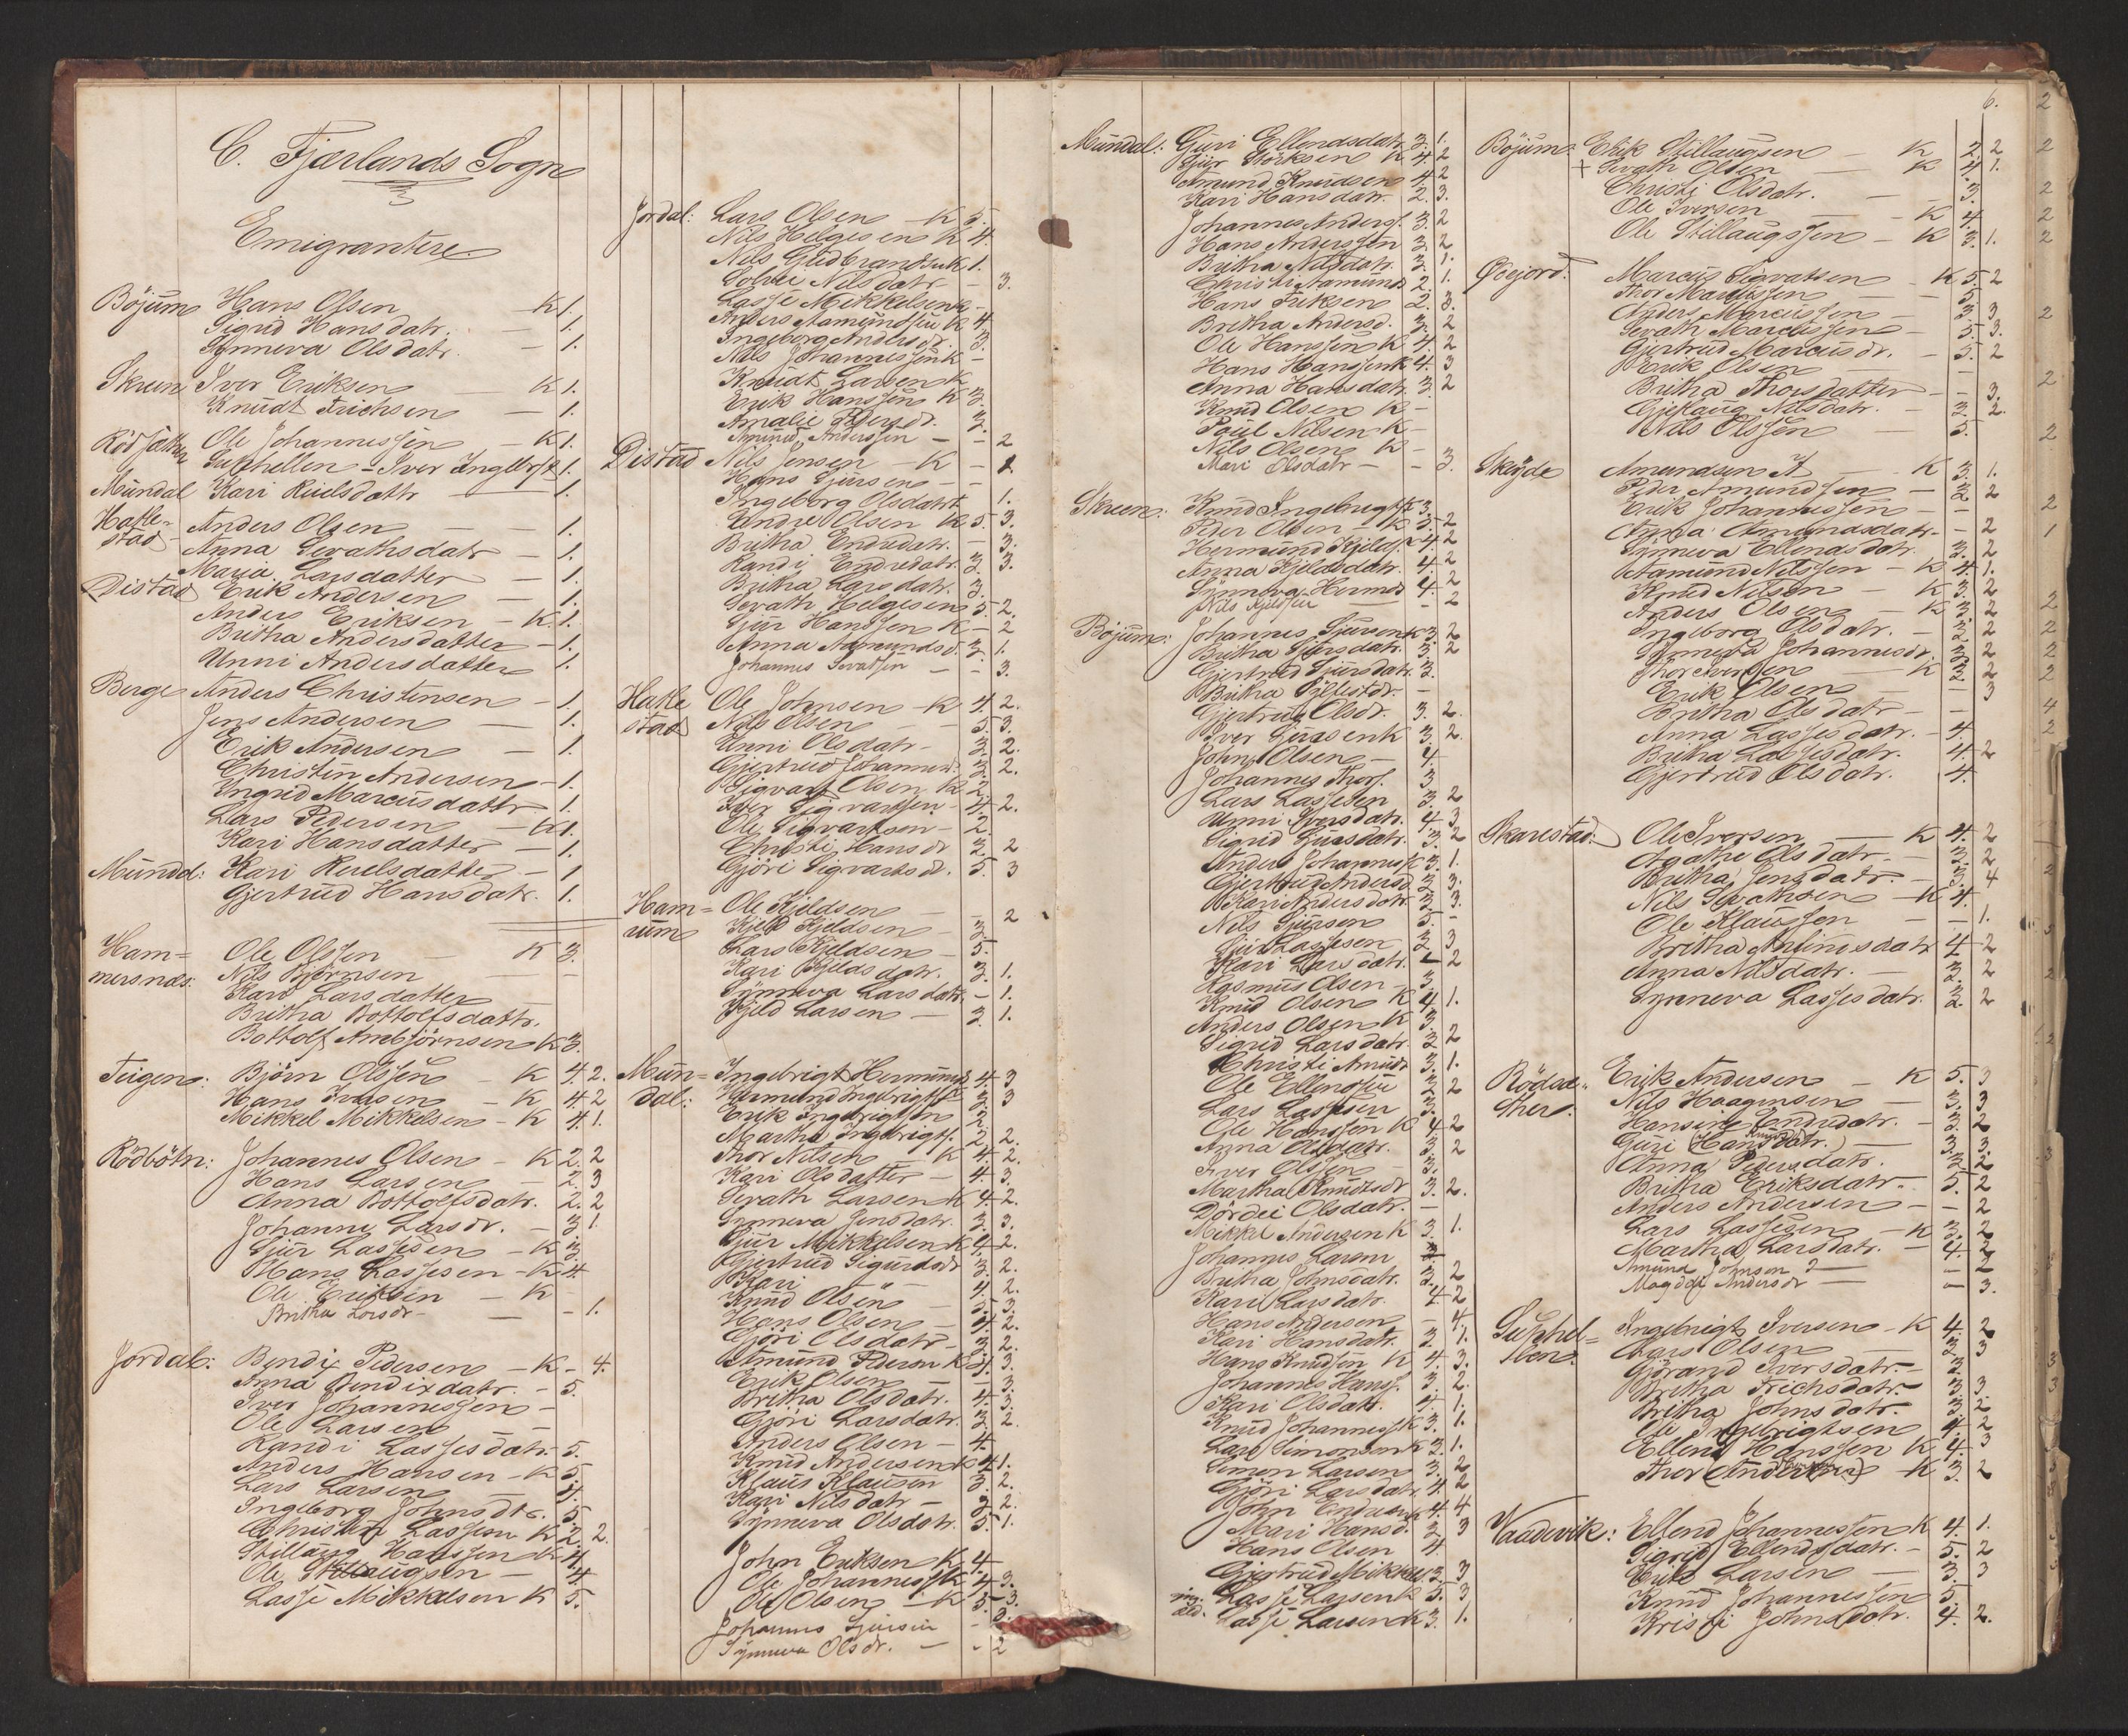 C. Fjærlands Sogn
Emigrantere.
Böjum Hans Olsen K 1.
Sigrid Hansdatr. — 1.
Synneva Olsdatr. — 1.
Skreen Iver Eriksen — K 1.
Knudt Frichsen — 1.
Ole Johannessen — K 1.
Suphellen - Iver 1.
Mundal Kari Reielsdattr — 1.
Hatle-
stad
Anders Olsen — 1.
Anna Sevathsdatr — 1.
Maria Larsdatter — 1.
Distad Erik Andersen — 1.
Anders Eriksen — K. 1.
Britha Andersdatter — 1.
Unni Andersdatter 1.
Berge Anders Christensen — 1.
Jens Andersen — 1.
Erik Andersen — 1.
Christen Andersen — 1.
Ingrid Marcusdattr 1.
Lars Pedersen — K 1.
Kari Hansdatter — 1.
Mundal: Kari Reielsdatter — 1
Gjertrud Hansdatr. 1.
Ham=
mersnæs:
Ole Olssen — K 3.
Nils Björnsen — —
Kari Larsdatter —
Britha Bottolfsdattr.
Bottolf Ambjörnsen K 3.
Teigen: Björn Olssen — K 4. 2.
Hans Iversen — K 4. 2
Mikkel Mikkelsen — K 4. 1.
Rödbötn: Johannes Olsen — K 2. 2
Hans Larsen — 2. 3
Anna Bottolfsdatr. 2. 2
Johanne Larsdr. — 3 1.
Sjur Lassesen — K 3.
Hans Lassesen — K 4.
Ole Eriksen — K
Britha Larsdr — — 1.
Jordal: Bendix Pedersen — K - 4.
Anna Bendixdatr. — 5.
Iver Johannessen —
Ole Larsen —
Randi Lassesdatr. 5.
Anders Hansen — K 5.
Lars Larsen — 4.
Ingeborg Johnsdtr. 5.
Christen Lassesen K 2. 2.
Stillaug Hanssen K 4.
Ole Stillaugsen — 4.
Lasse Mikkelsen K 5.
Jordal: Lars Olsen — K 5.
Nils Helgesen K 4.
Nils Gudbrandsen K 1.
Solvei Nilsdatr — 3.
Lasse Mikkelsen K —
Anders Aamundsen K 4
Ingeborg Andersdr. 3.
Nils Johannessen K —
Knudt Larsen K
Erik Hanssen K 3.
Amalie Pedersd. 3.
Amund Anderssen — — 2
Distad Nils Jensen — K — 1.
Hans Sjursen — —
Ingeborg Olsdatr 1.
Endre Olsen K 5. 3.
Britha Endredatr. — 3.
Randi Endredatr. 3. 3.
Britha Larsdatr. 3.
Sevath Helgesen 5 2.
Sjur Hanssen K — 2
Anna Aamundsd. 3. 1.
Johannes Sevatsen — — 3.
Hatle
stad
Ole Johnsen — K 4. 2.
Nils Olsen — 5. 3.
Unni Olsdatr — 3. 2.
Gjertrud Johannesd. 3. 2.
Sigvart Olsen K 2.
Iver Sigvartsen — 4. 2.
Ole Sigvartsen — 2.
Christi Hansdr 3. 2
Gjöri Sigvartsd. 5. 3
Ham=
rum
Ole Kjeldsen — — 2
Kjeld Kjeldsen — 3.
Lars Kjeldsen — 5.
Kari Kjeldsdatr. 3. 1.
Synneva Larsdatr. — 1.
Kjeld Larsen — 3. 1.
Mun=
dal:
Ingebrigt Hermunds 4. 3
Hermund Ingebrigts 3. 3
Erik Ingebrigtsen 2.
Martha Ingebrigts. 2. 2.
Thor Nilsen — K 4. 2.
Kari Olsdatter — 4. 3.
Sevath Larsen K 4. 2.
Synneva Jensdatr. 3. 3.
Sjur Mikkelsen K 4. 2.
Gjertrud Sigurdsdr 3. 2.
Kari " 4. 2.
Knud Olsen — 5. 3.
Hans Olsen — 4. 2.
Gjöri Olsdatr. — 3. 2.
Amund Pedersen K 4. 3.
Erik Olsen — 3.
Britha Olsdatr. 4. 3.
Gjöri Larsdatr. 3. 2.
Anders Olsen — 4.
Knud Andersen K 4 1.
Klaus Klausen 3. 2.
Kari Nilsdatr — 3. 2.
Synneva Olsdatr. 5. 1.
John Eriksen K 4.
Ole Johannessen K 4. 3.
Ole Olsen — K 5. 3.
Johannes Sjursen —
Synneva Olsdr. — — 2
Mundal: Guri Ellendsdatr. 3. 1.
Sjur Storksen K 4. 2
Amund Knudsen 4. 2
Kari Hansdatr. 2. 3.
Johannes Anders. 3. 2
Hans Anderssen 3. 2
Britha Nilsdatr. 3. 1.
Christi Aamunds 2. 1.
Hans Eriksen 2. 3.
Britha Andersd. 3. 2
Ole Hanssen K 4. 2
Hans Hanssen K 4. 3
Anna Hansdatr. 3. 2
Knud Olsen K —
Poul Nilsen K —
Nils Olsen K —
Mari Olsdatr — — 3.
Skreen: Knud Ingebrigts 3.
Peder Olsen — K 5. 2
Hermund Kjelds. K 4. 2
Anna Kjeldsdatr. 4. 2
Synneva Hermds 4. 2
Nils Kjeldsen — — 2
Böjum: Johannes Sjursen K 3. 2
Britha Sjursdatr. 3. 2
Gjertrud Sjursdatr. 3.
Britha —
Gjertrud Olsdr. 3. 2.
Iver Sjursen K 3. 2.
John Olsen — 4.
Johannes Thors. 3
Lars Lassesen 3. 2
Unni Iversdatr. 4. 3
Sigrid Sjursdatr. 3. 2
Anders Johannes. K 3. 1.
Gjertrud Andersd 3. 3.
Kari Andersdatr 3. 3.
Nils Sjursen 5. —
Sjur Lassesen 2. 3
Kari Larsdatr. — 2
Rasmus Olsen — 3.
Knud Olsen K 4. 1.
Anders Olsen K 3.
Sigrid Larsdatr. 3. 2
Christi Amundr 3. 1.
Ole Ellendsen 3. 2
Lars Lassesen 3.
Ole Hanssen K 4. 2
Anna Olsdatr. 3. 2
Iver Olssen — 3.
Martha Knudtsdr 3. 2.
Dordei Olsdatr. —
Mikkel Andersen K 3. 1.
Johannes Larsen
Britha Johnsdatr. 3. 2
Kari Larsdatr. 4. 2
Hans Andersen — 4.
Kari Hansdatr. 3. 1.
Hans Knudsen K 4. 3.
Johannes Hanss. 3. 2.
Kari Olsdatr. 4. 1.
Knud Johannes. K 3. 1.
Lars Simonsen K 3. 1.
Simon Larsen 3. 2
Gjöri Larsdatr 4. 2
John Endresen K 4. 4.
Mari Hansd. 3. 3
Hans Olsen 4.
Gjertrud Mikkels. 3. 3
Lasse Larsen K 5. 3
Lasse Larsen K 3. 1.
6.
Böjum: Erik Stillaugsen — K 2. 2
+ Sevath Olsen — K 4. 1.
Christi Olsdatr. — 3.
Ole Iversen — K 4.
Ole Stillaugssen — K 3. 1.
Øvejord: Marcus Sigvatsen — K 5. 2
Thor Marcussen — — 5.
Anders Marcussen — 3. 3
Sevath Marcussen — 5. 3.
Gjertrud Marcusdr. — 5. 2
Erik Olsen —
Britha Thorsdatter — — 3.
Gjellaug Nilsdatr. — 3. 2.
Nils Olssen — 5.
Skeide Amundsen A — K 3. 1.
Peder Amundsen — 3. 2
Erik Johannessen — —
Anna Amundsdatr. — 2
Synneva Ellendsdatr. 3. 2
Aamund Nilssen — K 4. 1.
Knud Nilsen — K 3. 2
Anders Olsen — K 3. 2
Ingeborg Olsdatr. — 3. 2
Synneva Johannesdr. 3. 2
Thor Iversen — K 3. 2
Erik Olsen — 3
Britha Olsdatr — —
Anna Lassesdatr. — 4.
Britha Lassesdatr. 4. 2
Gjertrud Olsdatr. 4.
Skarestad: Ole Iversen — K 4. 2
Agathe Olsdatr. — 3. 2
Britha Jensdatr. — 3. 4
Nils Sevathsen — K 4.
Ole Klaussen — — 1.
Britha 4. 2
Anna Nilsdatr. — 3. 2
Synneva Lassesdatr. 3. 2
Rödsæ-
ther:
Erik Andersen — K 5. 3
Nils Haagensen — 3. 3
Hansine Endredatr. — 3. 2
Guri (Hansdatr.) — 3. 3.
Anna Pedersdatr. 3. 2
Britha Eriksdatr. 5. 2
Anders Andersen — — 2
Lars Lassesen — K 3. 2
Martha Larsdatr. — 4. 2
Amund Johnsen ? — — 2
Magdda Andersdr — — 3.
Suphel=
len:
Ingebrigt Iversen — K 4. 2
Lars Olsen — 3. 3
Gjörand Iversdatr. — 3.
Britha Frichsdatr. 3. 3.
Britha Johnsdatr. 3. 2
Ole Ingebrigtsen 4. 2
Ellend Hanssen K 4. 3
Thor (Andersen) — K 3. 2
Vaadevik: Ellend Johannessen K 4. 1.
Sigrid Ellendsdatr. — 5. 2
Erik Larsen — 3. 3
Knud Johannessen 5.
Kristi Johnsdatr. 4. 2.